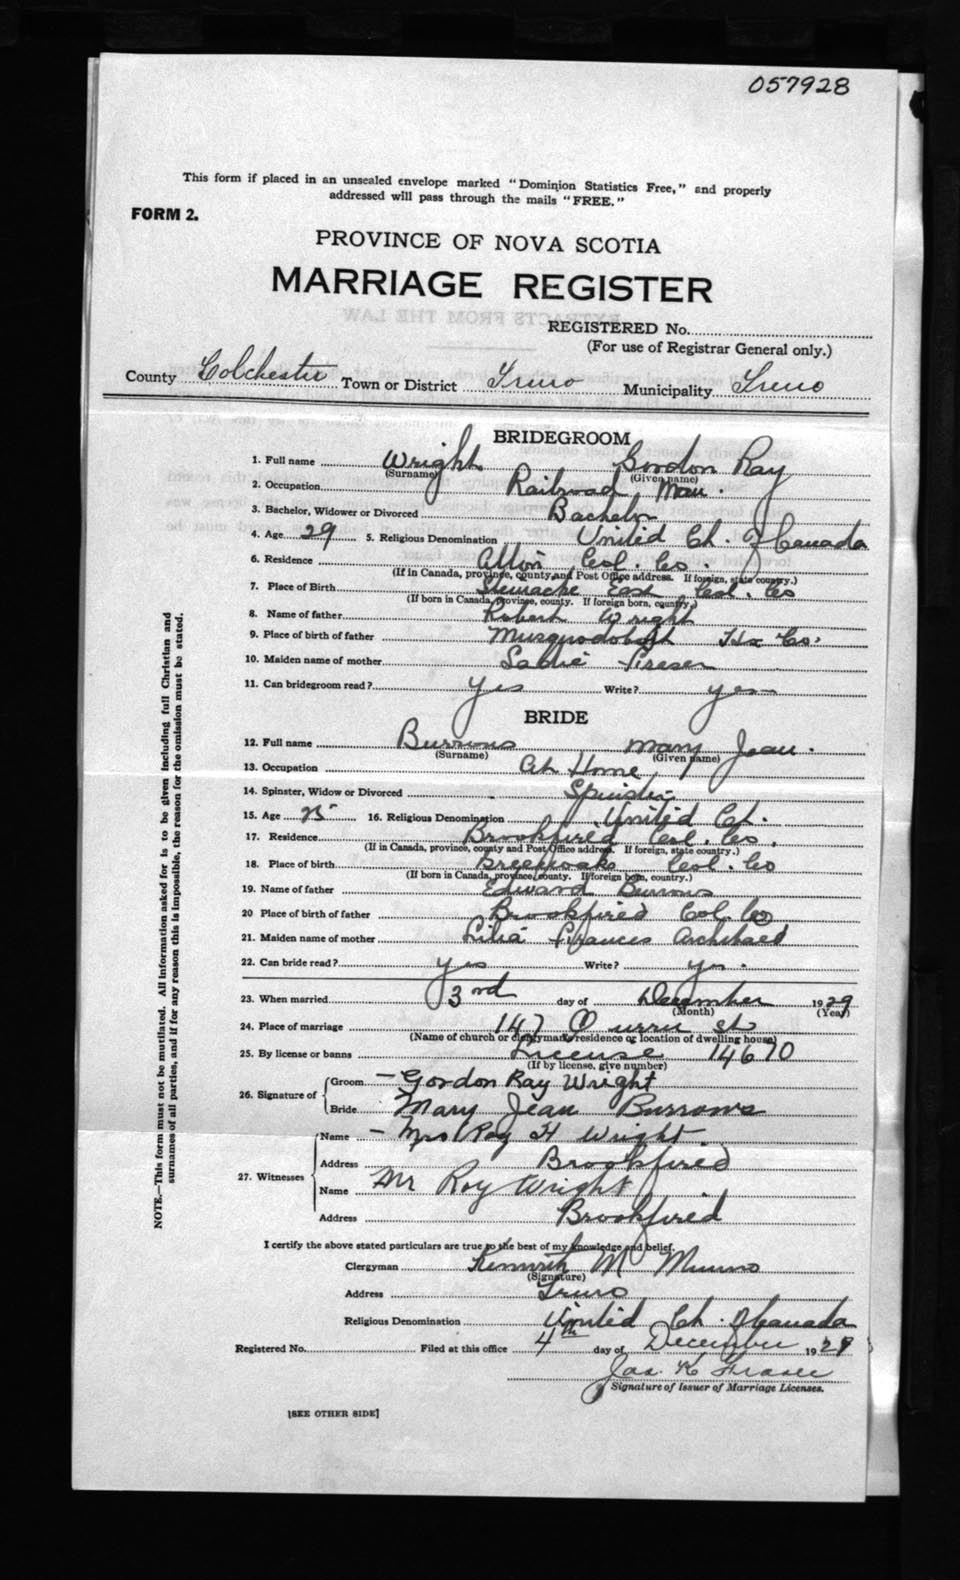 057928
This form if placed in an unsealed envelope marked "Dominion Statistics Free," and properly
addressed will pass through the mails "FREE."
FORM 2.
PROVINCE OF NOVA SCOTIA
MARRIAGE REGISTER
REGISTERED No.
(For use of Registrar General only.)
County Colchester Town or District Truro Municipality Truro
BRIDEGROOM
1. Full name Wright Gordon Ray
(Surname) (Given name)
2. Occupation Railroad Man.
3. Bachelor, Widower or Divorced Bachelor
4. Age 29 5. Religious Denomination United Ch. of Canada
6. Residence Alton Col. Co.
(If in Canada, province, county and Post Office address. If foreign, state country.)
7. Place of Birth Stewiacke East Col. Co
(If born in Canada, province, county. If foreign born, country.)
8. Name of father Robert Wright
9. Place of birth of father Musquodoboit Hx Co.
10. Maiden name of mother
11. Can bridegroom read? yes Write? yes
BRIDE
12. Full name Burrows Mary Jean.
(Surname) (Given name)
13. Occupation At Home
14. Spinster, Widow or Divorced Spinster
15. Age 25 16. Religious Denomination United Ch.
17. Residence Brookfired Col. Co.
(If in Canada, province, county and Post Office address. If foreign, state country.)
18. Place of birth Col. Co
(If born in Canada, province, county. If foreign born, country.)
19. Name of father Edward Burrows
20 Place of birth of father Brookfired Col. Co
21. Maiden name of mother Frances
22. Can bride read? yes Write? yes.
23. When married 3rd day of December 1929
(Month) (Year)
24. Place of marriage 147 Queen St
(Name of church or clergyman's residence or location of dwelling house)
25. By license or banns License 14670
(If by license, give number)
26. Signature of Groom Gordon Ray Wright
Bride Mary Jean Burrows
27. Witnesses
Name Mrs Roy H Wright.
Address Brookfired
Name Mr Roy Wright
Address Brookfired
I certify the above stated particulars are true to the best of my knowledge and belief.
Clergyman Kenneth M Munro
(Signature)
Address Truro
Religious Denomination United Ch. of Canada
Registered No. Filed at this office 4th day of December 1929
Jas. K Fraser
Signature of Issuer of Marriage Licenses.
[SEE OTHER SIDE]
NOTE.—This form must not be mutilated. All information asked for is to be given including full Christian and
surnames of all parties, and if for any reason this is impossible, the reason for the omission must be stated.